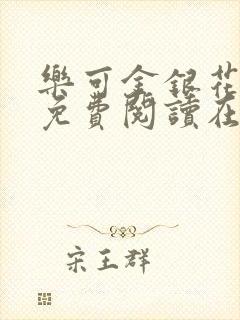 樂可金銀花
免費閱讀在
宋玉群